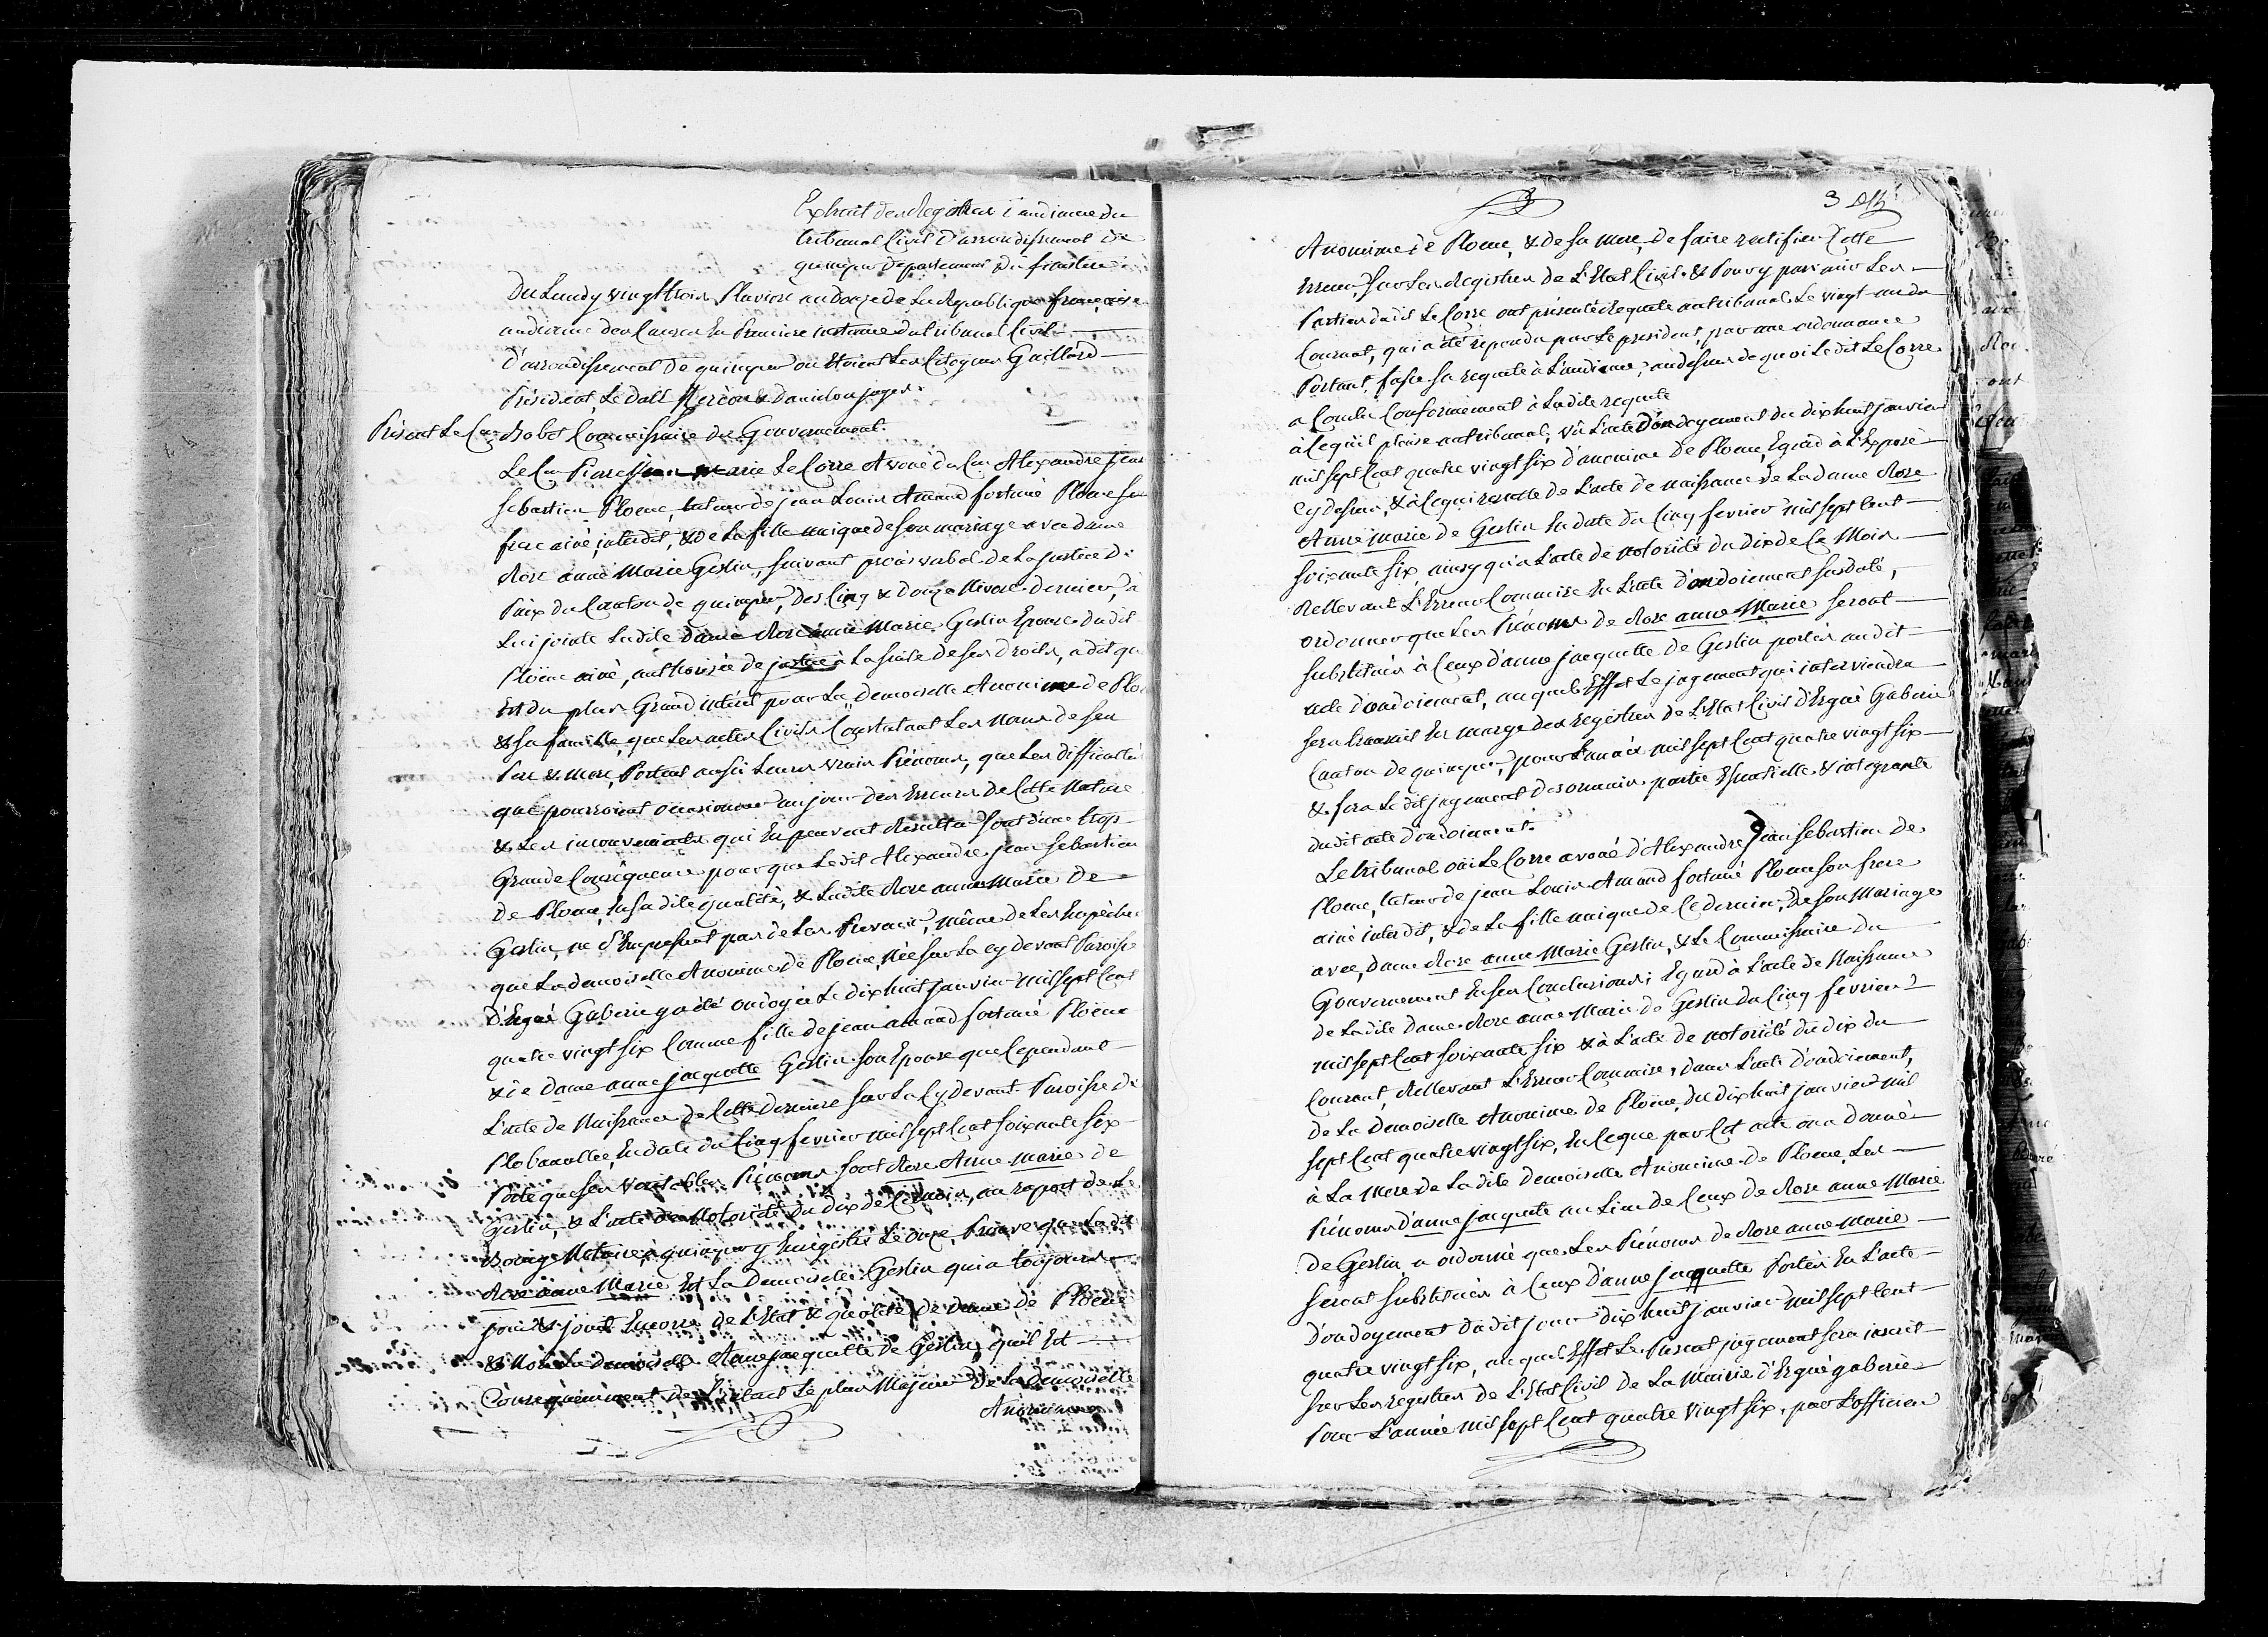 Extrait des Registres d'audience du
tribunal Civil d'arrondissement de
quimper departement du finistere
Du Lundy vingt trois Pluviose an douze de La Republique française
audience des Causes En Premiere instance du tribunal Civil
d'arrondissement de quimper ou Etoient Les Citoyens Gaillard
Président, Le Dall Kereon & Danielou juges.
Présent Le Cen Bobet Commissaire du Gouvernement.
Le Cen Pierre jean marie Le Corre Avoué du Cen Alexandre jean
Sebastien Ploeuc, tuteur de jean Louis Amand fortuné Ploeuc son
frere ainé, interdit, & de La fille unique de Son mariage avec dame
Rose anne Marie Geslin, Suivant procès verbal de La justice de
Paix du Canton de quimper, des Cinq & Douze Nivose dernier, à
Lui jointe Ladite Dame Rose anne Marie Geslin Epouse dudit
Ploeuc ainé, authorisée de justice à La suite de Ses Droits, a dit qu
Est du plus Grand intérêt pour La Demoiselle Anonime de Plo
& Sa famille, que Les actes Civils Constatant Les Noms de Ses
Pere & mere, Portent aussi Leurs vrais Prénoms, que Les difficultés
que pourroient occasionner un jour des Erreurs de Cette Nature
& Les inconvenients qui En peuvent Resulter Sont d'une trop
Grande Conséquence pour que Ledit Alexandre jean Sebastien
De Ploeuc, En Sa dite qualité, & Ladite Rose anne Marie De
Geslin, ne S'Empressent pas de Les Prévenir, même de Les Empêcher
que La demoiselle Anonime de Ploeuc, Née Sur La cy devant Paroisse
d'Ergué Gaberic, y a été ondoyée Le dix huit janvier mil sept Cent
quatre vingt Six Comme fille de jean amand fortuné Ploeuc
& de Dame anne jacquette Geslin Son Epouse que Cependant
L'acte de Naissance de Cette derniere Sur La Cy devant Paroisse de
Plobanallec, En date du Cinq fevrier mil sept Cent Soixante Six
Porte que Ses veritables Prénoms Sont Rose Anne Marie de
Geslin, & L'acte de Notoriété du dix de Ce mois, au raport de Le
Bourg Notaire à quimper y Enregistré Le onze, Prouve que Ladite
Rose anne Marie Est La Demoiselle Geslin qui a toujours
joui & jouit Encore de L'Etat & qualité de Dame de Ploeuc
& Non La Demoiselle Anne jacquette de Geslin, qu'il Est
Conséquemment de L'intérêt Le plus Majeur De La Demoiselle
Anonime
3
Anonime de Ploeuc, & de Sa mere, de faire rectifier Cette
Erreur, Sur Les Registres de L'Etat Civil. & Pour y parvenir Les
Parties dudit Le Corre ont présenté Requete au tribunal Le vingt un du
Courant, qui a été repondu par Le president, par une ordonnance
Portant, fasse Sa requete à L'audience, audessus de quoi Ledit Le Corre
a Conclu Conformement à Ladite requete
à Ce qu'il plaise au tribunal, vû L'acte D'ondoyement du dix huit janvier
mil sept Cent quatre vingt Six d'anonime de Ploeuc, Egard à L'Exposé
Cy dessus, & à Ce qui résulte de L'acte de naissance de La dame Rose
Anne marie de Geslin En date du Cinq fevrier mil sept Cent
Soixante Six, ainsy qu'à L'acte de notoriété du Dix de Ce Mois
Rellevant L'Erreur Commise En L'acte d'ondoiement Susdaté,
ordonner que Les Prénoms de Rose anne Marie Seront
Substitués à Ceux d'anne jacquette de Geslin portés audit
acte d'ondoiement, auquel Effet Le jugement qui interviendra
Sera transcrit En marge des registres de L'Etat Civil d'Ergué Gaberic
Canton de quimper, pour L'année mil sept Cent quatre vingt Six
& fera Ledit jugement desormais partie Essentielle & integrante
dudit acte d'ondoiement.
Le tribunal oui Le Corre avoué d'Alexandre jean Sebastien de
Ploeuc, tuteur de jean Louis Amand fortuné Ploeuc Son frere
ainé interdit, & de La fille unique de Ce dernier, de Son Mariage
avec, Dame Rose anne Marie Geslin, & Le Commissaire du
Gouvernement En Ses Conclusions; Egard à L'acte de Naissance
de Ladite Dame Rose anne Marie de Geslin du Cinq fevrier
mil sept Cent soixante Six & à L'acte de notoriété du dix du
Courant, Rellevant L'Erreur Commise, dans L'acte d'ondoiement,
de La Demoiselle Anonime de Ploeuc, du dix huit janvier mil
sept Cent quatre vingt Six, En Ce que par Cet acte on a donné
à La Mere de Ladite Demoiselle Anonime de Ploeuc, Les
Prénoms d'anne jacquette au Lieu de Ceux de Rose anne Marie
de Geslin, a ordonné que Les Prénoms de Rose anne Marie
Seront Substitués à Ceux d'anne jacquette Portés En L'acte
d'ondoyement dudit jour dix huit janvier mil sept Cent
quatre vingt Six, auquel Effet Le Présent jugement Sera inscrit
Sur Les registres de L'Etat Civil de La Mairie d'Ergué gaberic
Pour L'année mil sept Cent quatre vingt Six, par L'officier